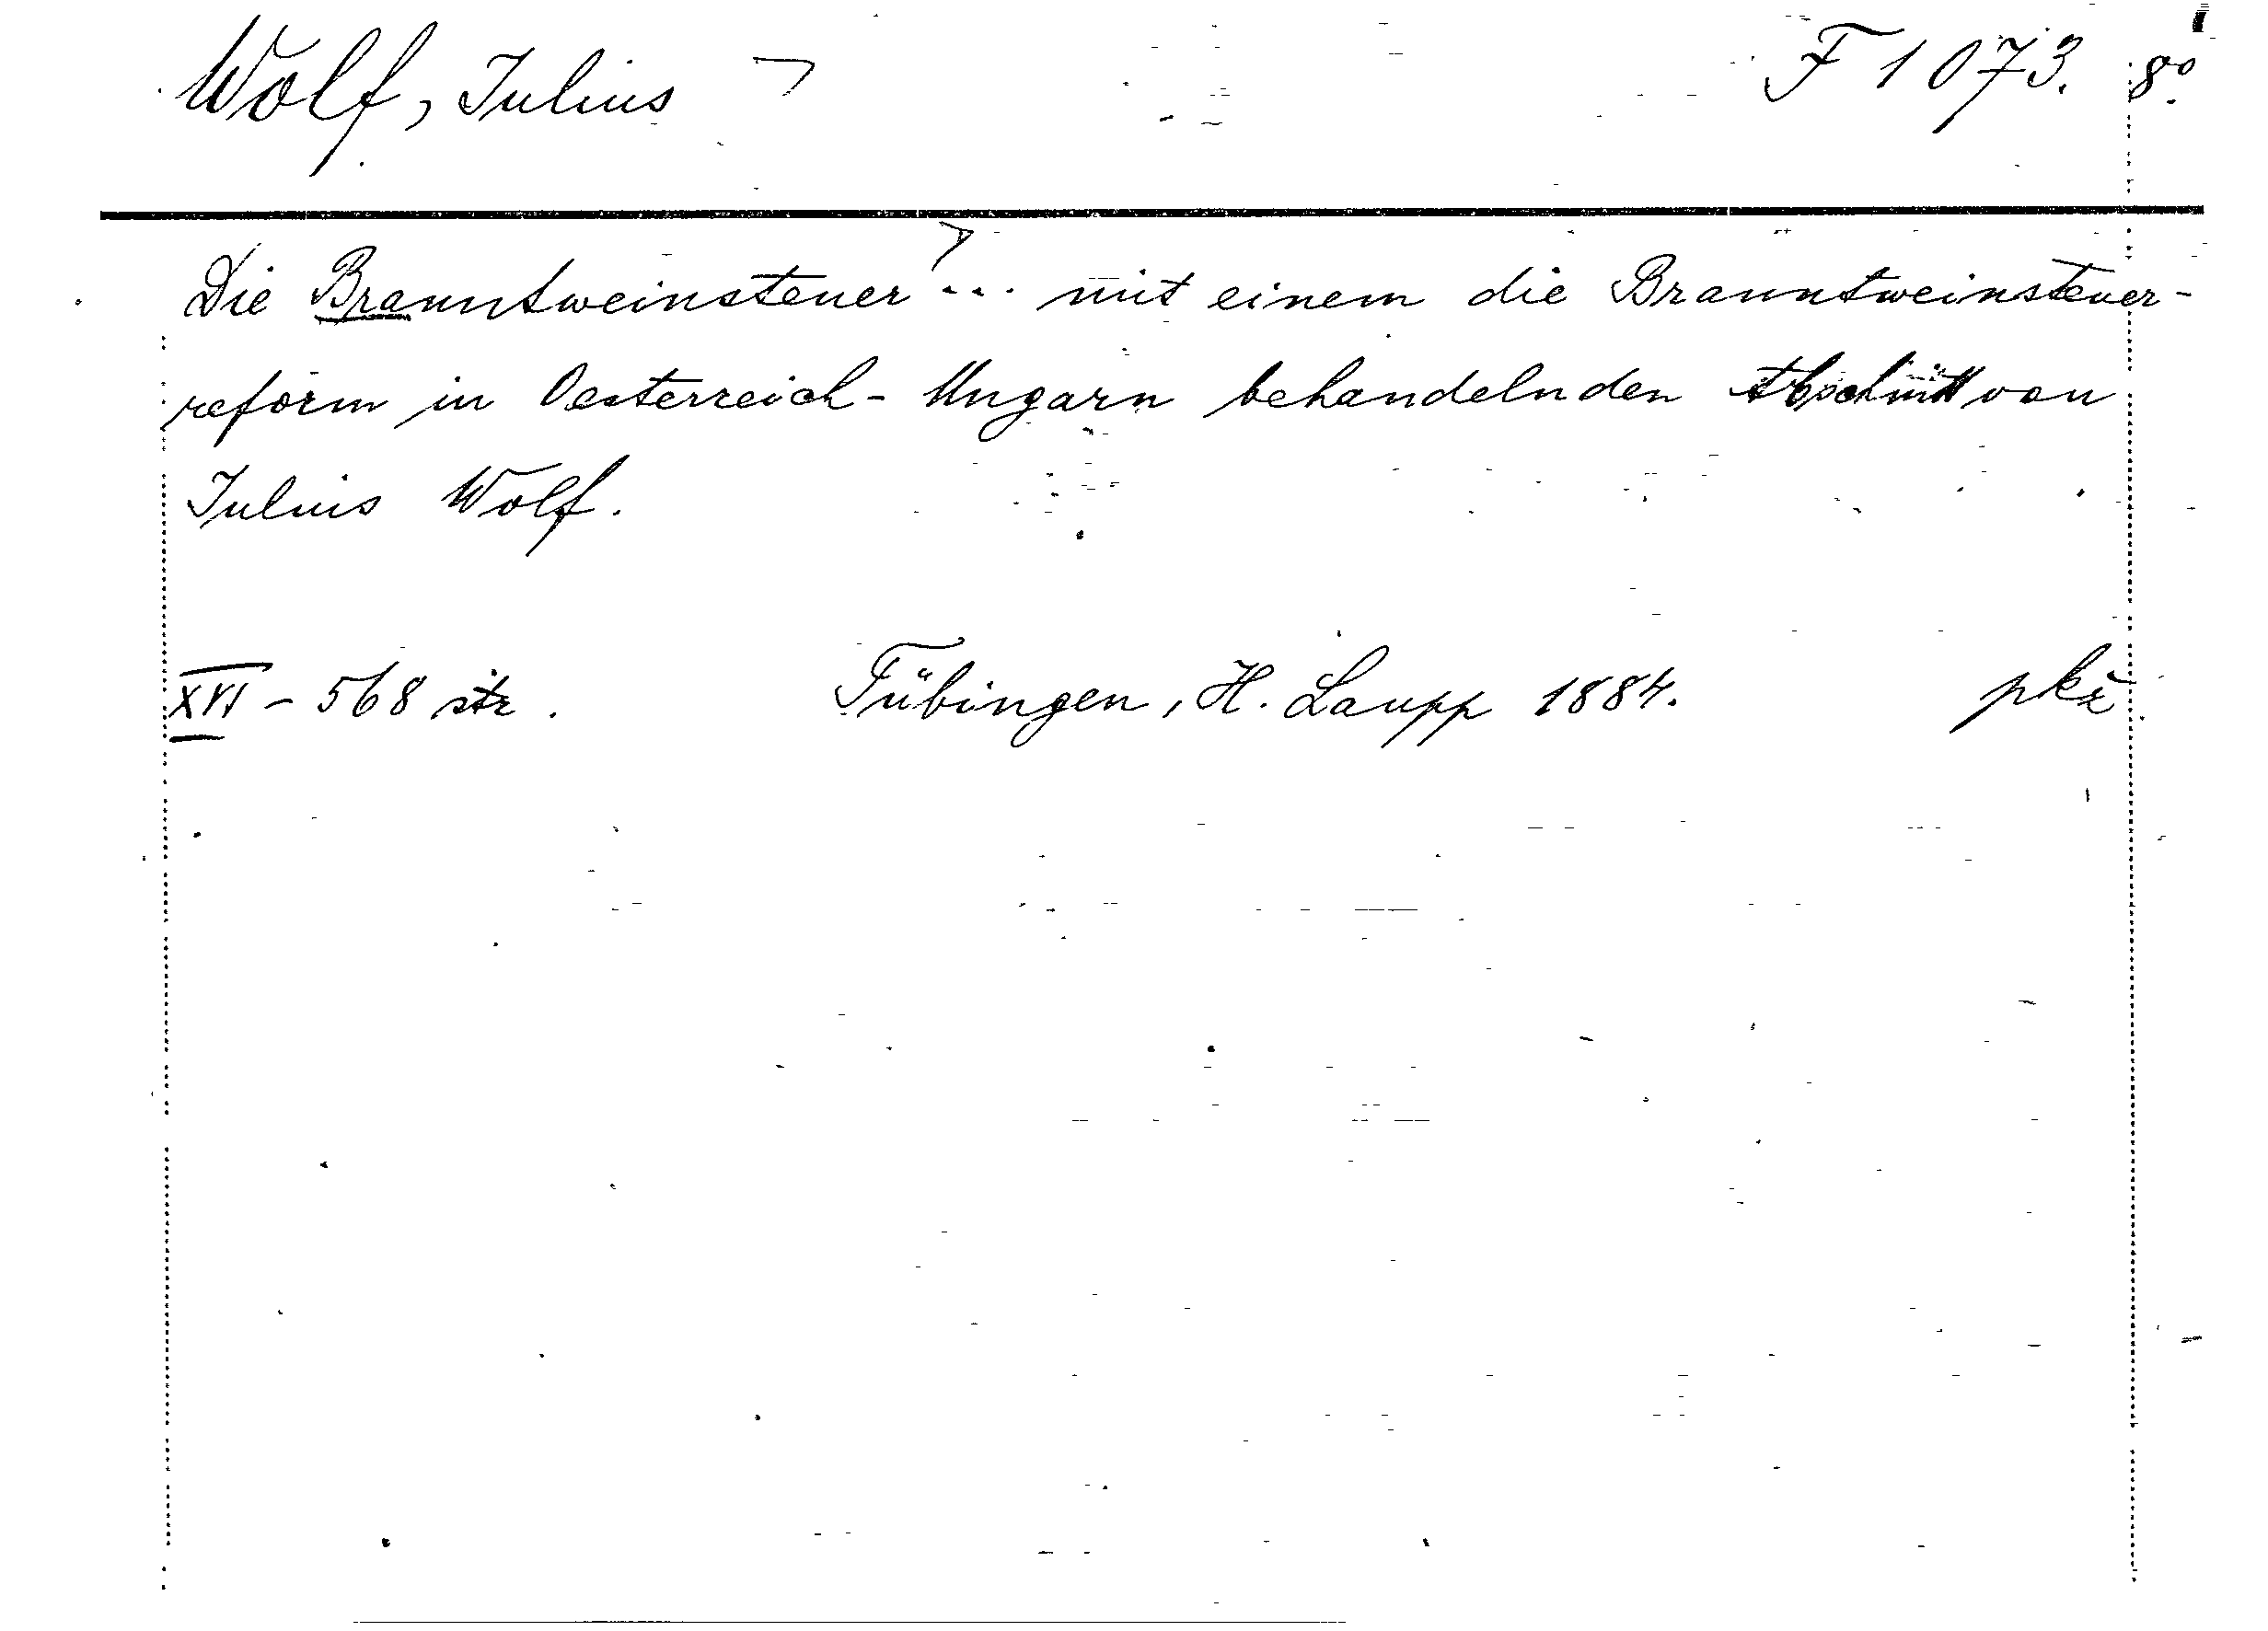 Wolf, Julius F 1073. 8°.
Die Branntweinsteuer ... mit einem die Branntweinsteuer-
reform in Oesterreich-Ungarn behandelnden Abschnitt von
Julius Wolf.
XVI - 568 str. Tübingen, H. Laupp 1884. pkž